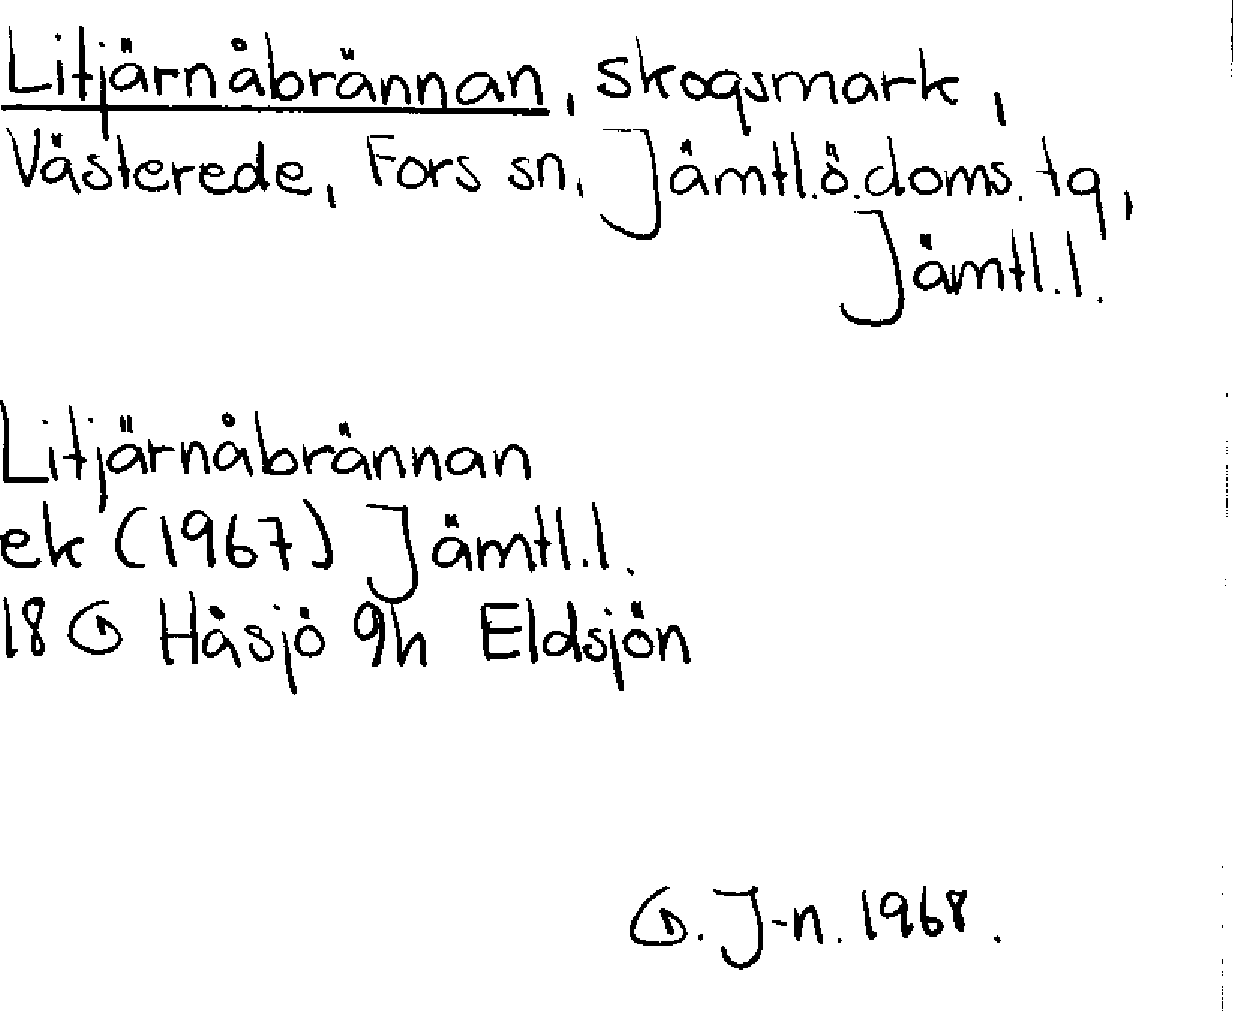 Litjärnåbrännan, skogsmark,
Västerede, Fors sn, Jämtl.ö.doms. tg,
Jämtl.l.
Litjärnåbrännan
ek (1967) Jämtl.l.
18 G Håsjö 9h Eldsjön
G. J-n. 1968.